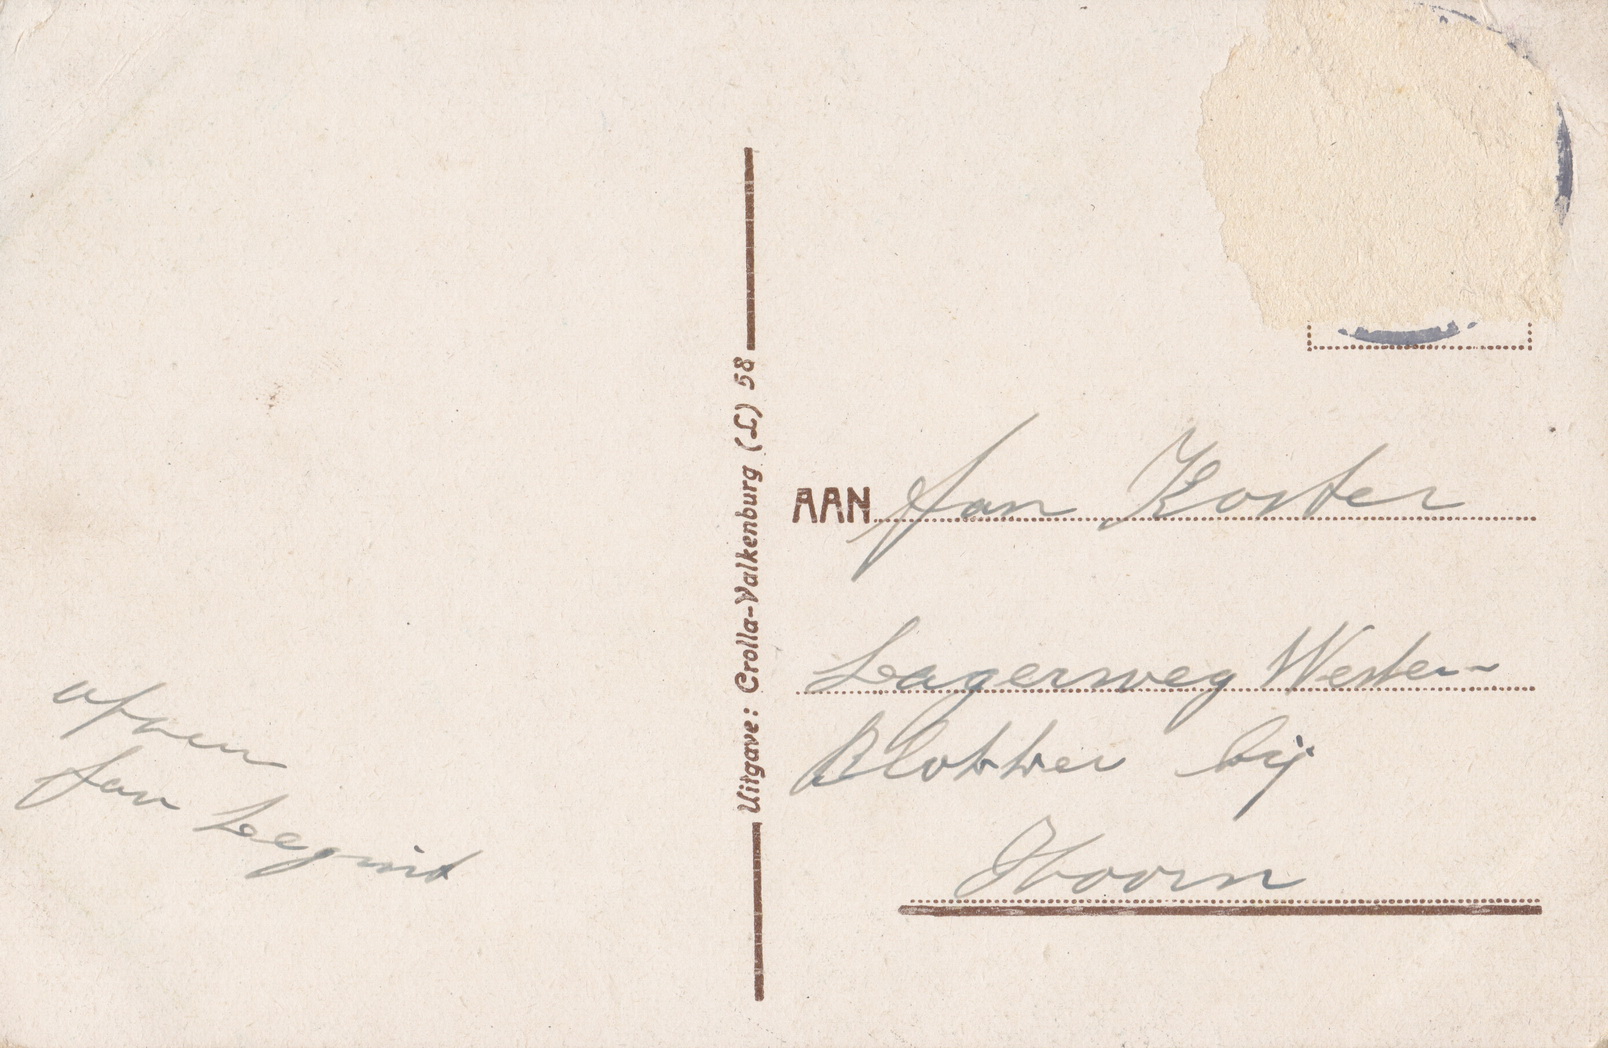 Uitgave: Crolla-Valkenburg (L) 58
AAN Jan Koster
Lagerweg Wester-
Blokker bij
Hoorn
afzen
Jan